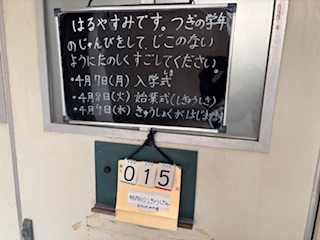 はるやすみです。つぎの学年
のじゅんびをして、じこのない
ようにたのしくすごしてください。
・4月7日(月) 入学式
・4月8日(火) 始業式(しぎょうしき)
・4月9日(水) きゅうしょくがはじまる
015